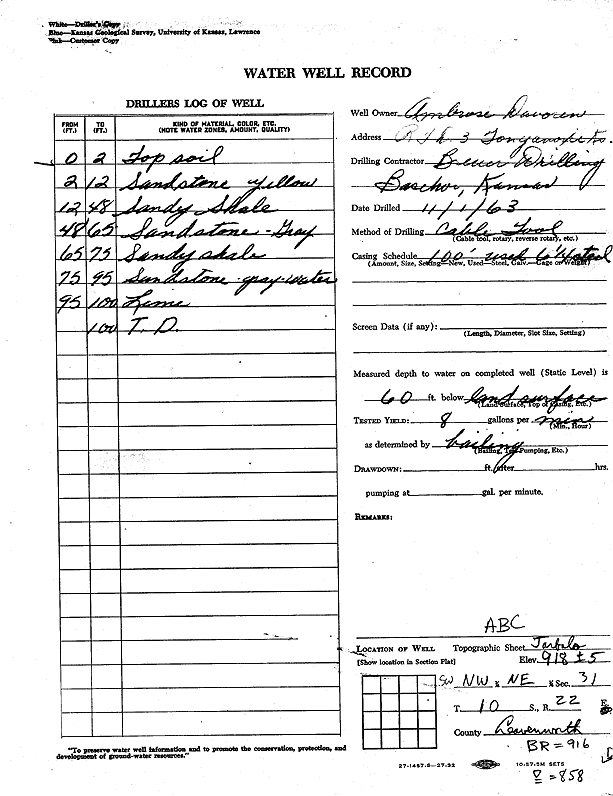 White—Driller's Copy
Blue—Kansas Geological Survey, University of Kansas, Lawrence
Pink—Customer Copy
WATER WELL RECORD
DRILLERS LOG OF WELL
FROM (FT.) TO (FT.) KIND OF MATERIAL, COLOR, ETC. (NOTE WATER ZONES, AMOUNT, QUALITY)
0 2 Top soil
2 12 Sandstone yellow
12 48 Sandy Shale
48 65 Sandstone - Gray
65 75 Sandy shale
75 95 Sandstone - gray - water
95 100 Lime
100 T. D.
"To preserve water well information and to promote the conservation, protection, and
development of ground-water resources."
Well Owner Ambrose Davoren
Address 3 Tonganoxie Ks.
Drilling Contractor Drilling
Basehor, Kansas
Date Drilled 11/1/63
Method of Drilling Cable Tool
(Cable tool, rotary, reverse rotary, etc.)
Casing Schedule 100' used 6 1/4 steel
(Amount, Size, Setting—New, Used—Steel, Galv.—Gage or Weight)
Screen Data (if any):
(Length, Diameter, Slot Size, Setting)
Measured depth to water on completed well (Static Level) is
60 ft. below land surface
(Land Surface, Top of Casing, Etc.)
TESTED YIELD: 8 gallons per min
(Min., Hour)
as determined by bailing
(Bailing, Test Pumping, Etc.)
DRAWDOWN: ft. after hrs.
pumping at gal. per minute.
REMARKS:
ABC
LOCATION OF WELL Topographic Sheet Jarbalo
[Show location in Section Plat] Elev. 918 ± 5
SW NW ¼ NE ¼ Sec. 31
T. 10 S., R. 22 E
County Leavenworth
BR = 916
27-1457-S—27-92 10-57-5M SETS
= 858